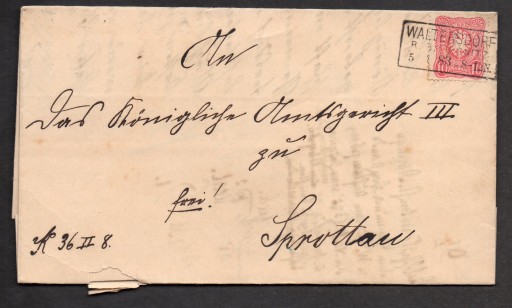 An
WALTERSDORF
5 83 8-12V.
Das Königliche Amtsgericht III
zu
frei!
Sprottau
36 II 8.